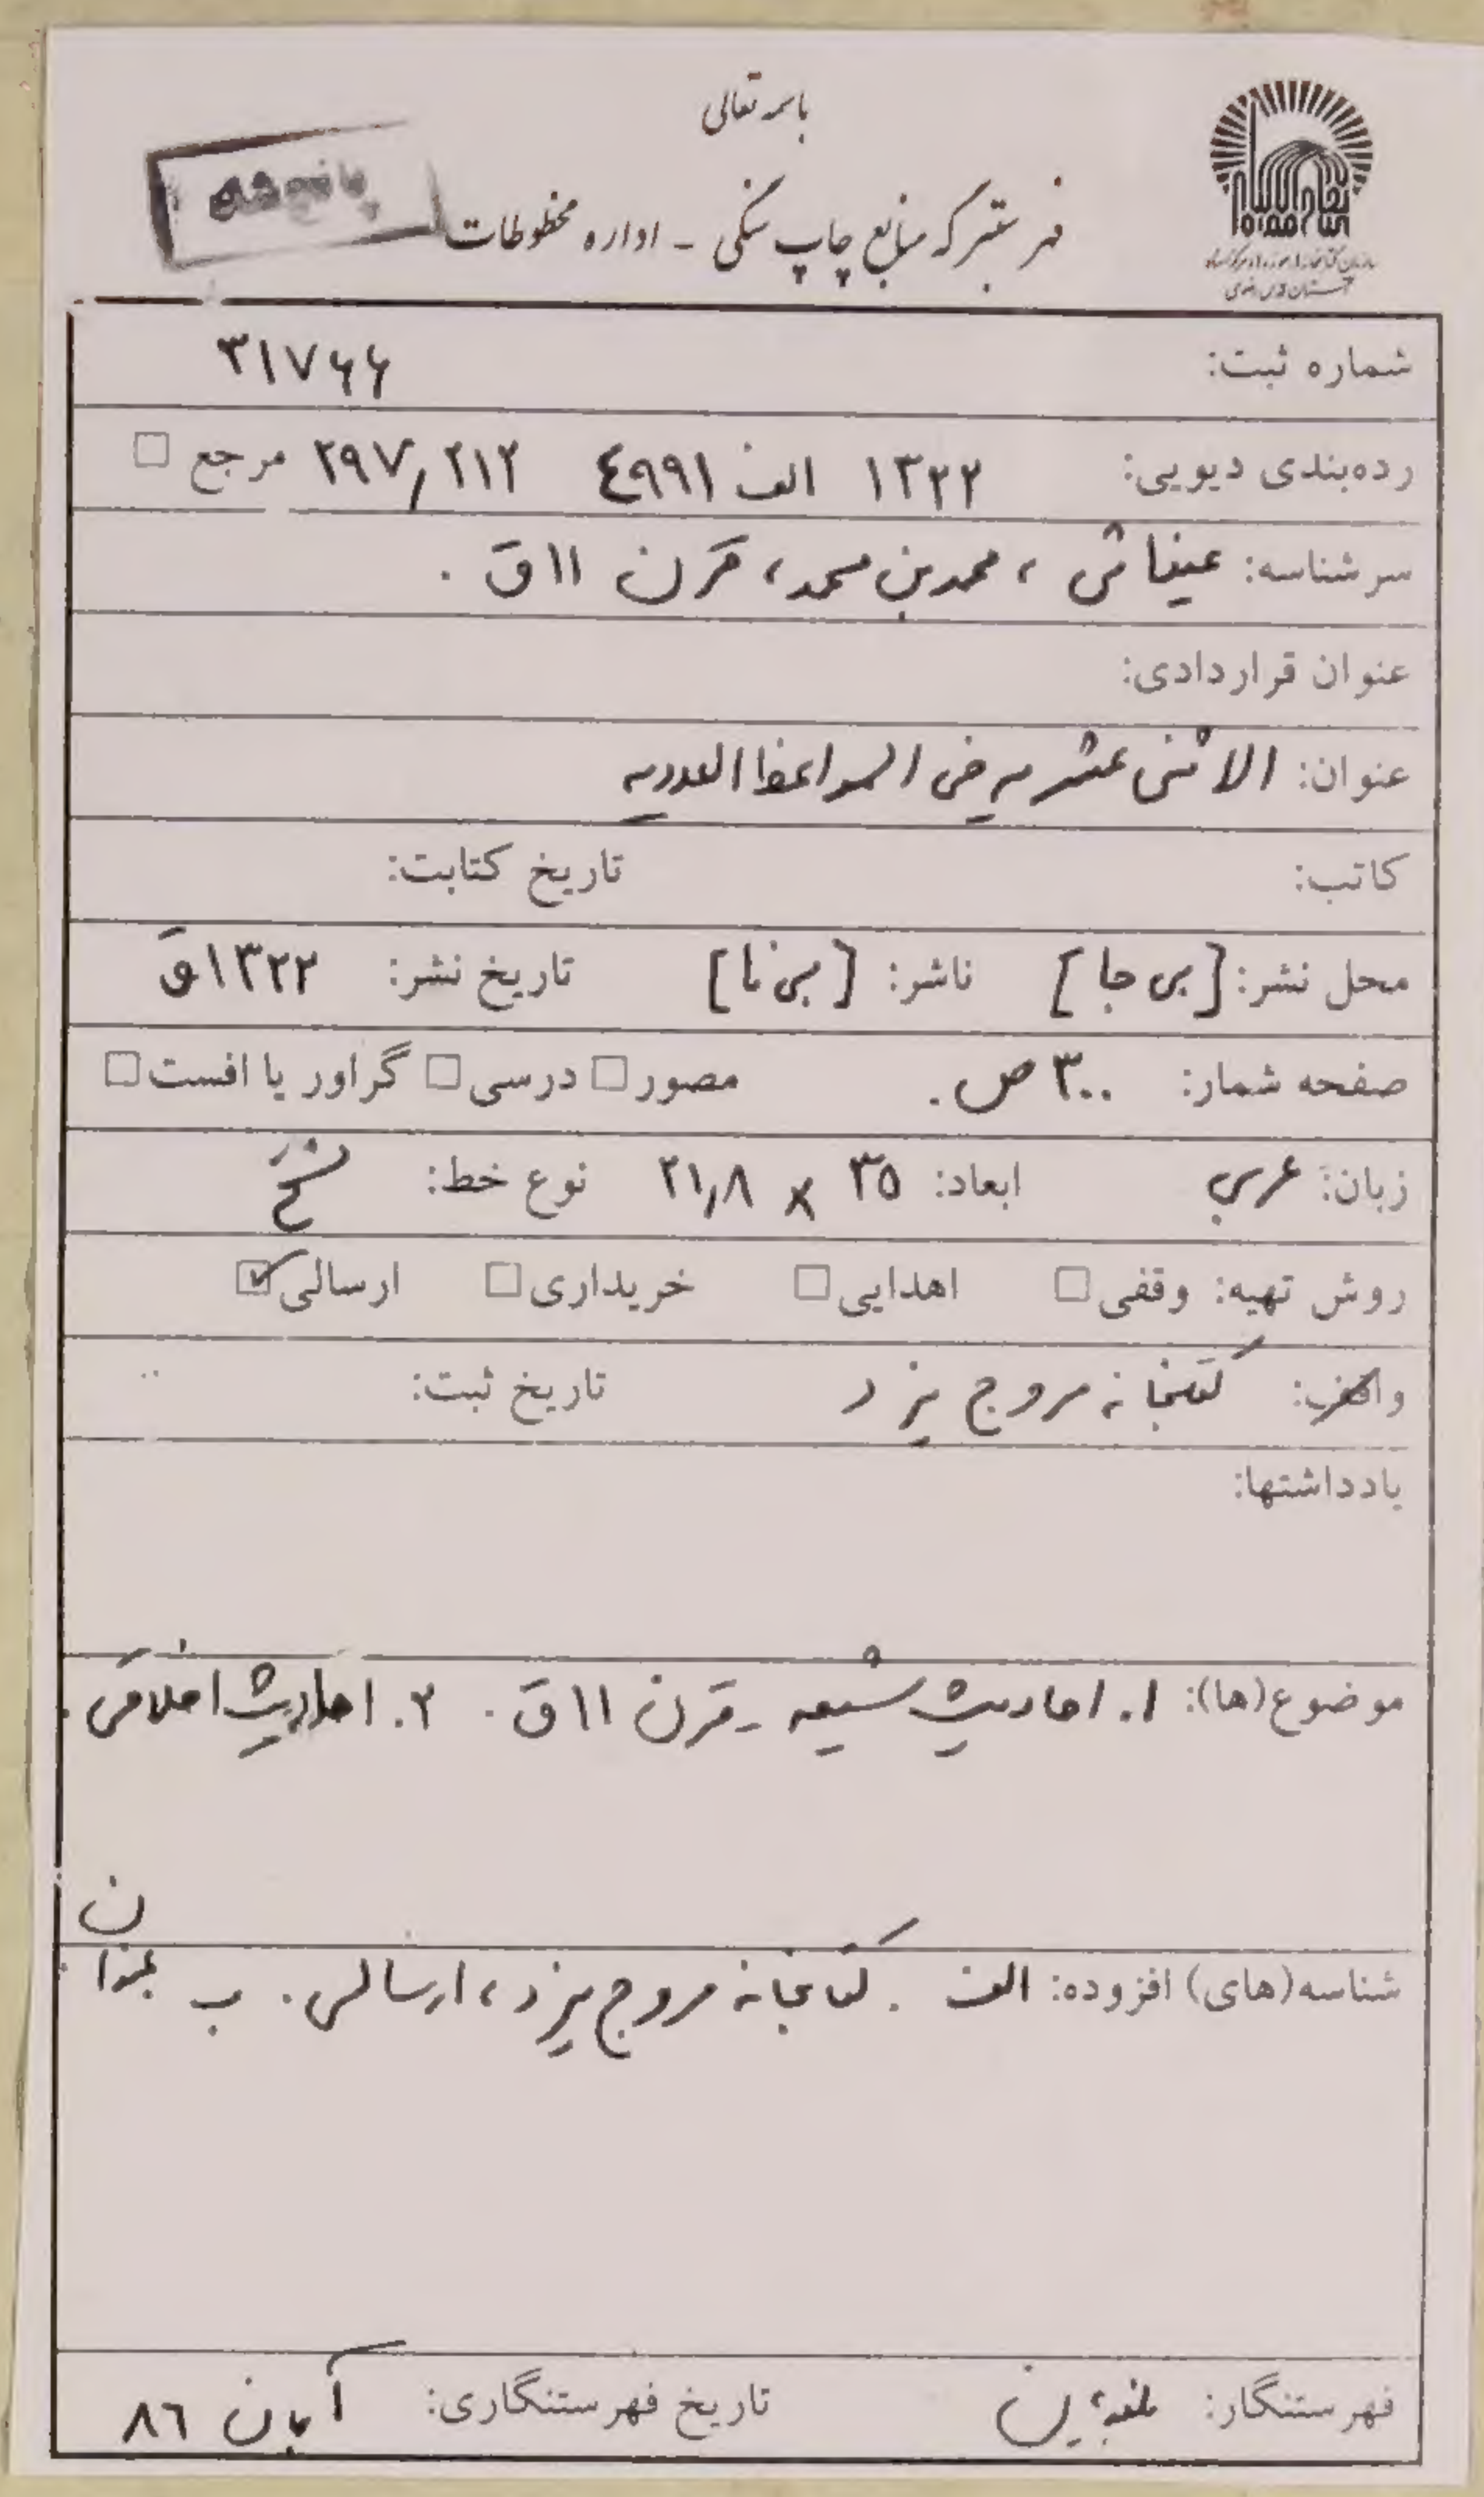 باسمه تعالی
فهرستبرگه منابع چاپ سنگی - اداره مخطوطات
سازمان کتابخانه‌ها، موزه‌ها و مرکز اسناد
آستان قدس رضوی
شماره ثبت: ۳۱۷۶۶
رده‌بندی دیویی: ۱۳۲۲ الف ۴۹۹۱ ۲۹۷/۲۱۲ مرجع
سرشناسه: عیناثی، محمد بن محمد، قرن ۱۱ق.
عنوان قراردادی:
عنوان: الاثنی عشریه فی المواعظ العددیه
کاتب: تاریخ کتابت:
محل نشر: [بی جا] ناشر: [بی نا] تاریخ نشر: ۱۳۲۲ق
صفحه شمار: ۳۰۰ ص. مصور درسی گراور یا افست
زبان: عربی ابعاد: ۳۵ × ۲۱٫۸ نوع خط: نسخ
روش تهیه: وقفی اهدایی خریداری ارسالی
واقف: کتابخانه مروج یزد تاریخ ثبت:
یادداشتها:
موضوع(ها): ۱. احادیث شیعه - قرن ۱۱ق. ۲. احادیث اخلاقی.
ن
شناسه(های) افزوده: الف. کتابخانه مروج یزد، ارسالی. ب عنوان
فهرستنگار: تاریخ فهرستنگاری: آبان ۸۶